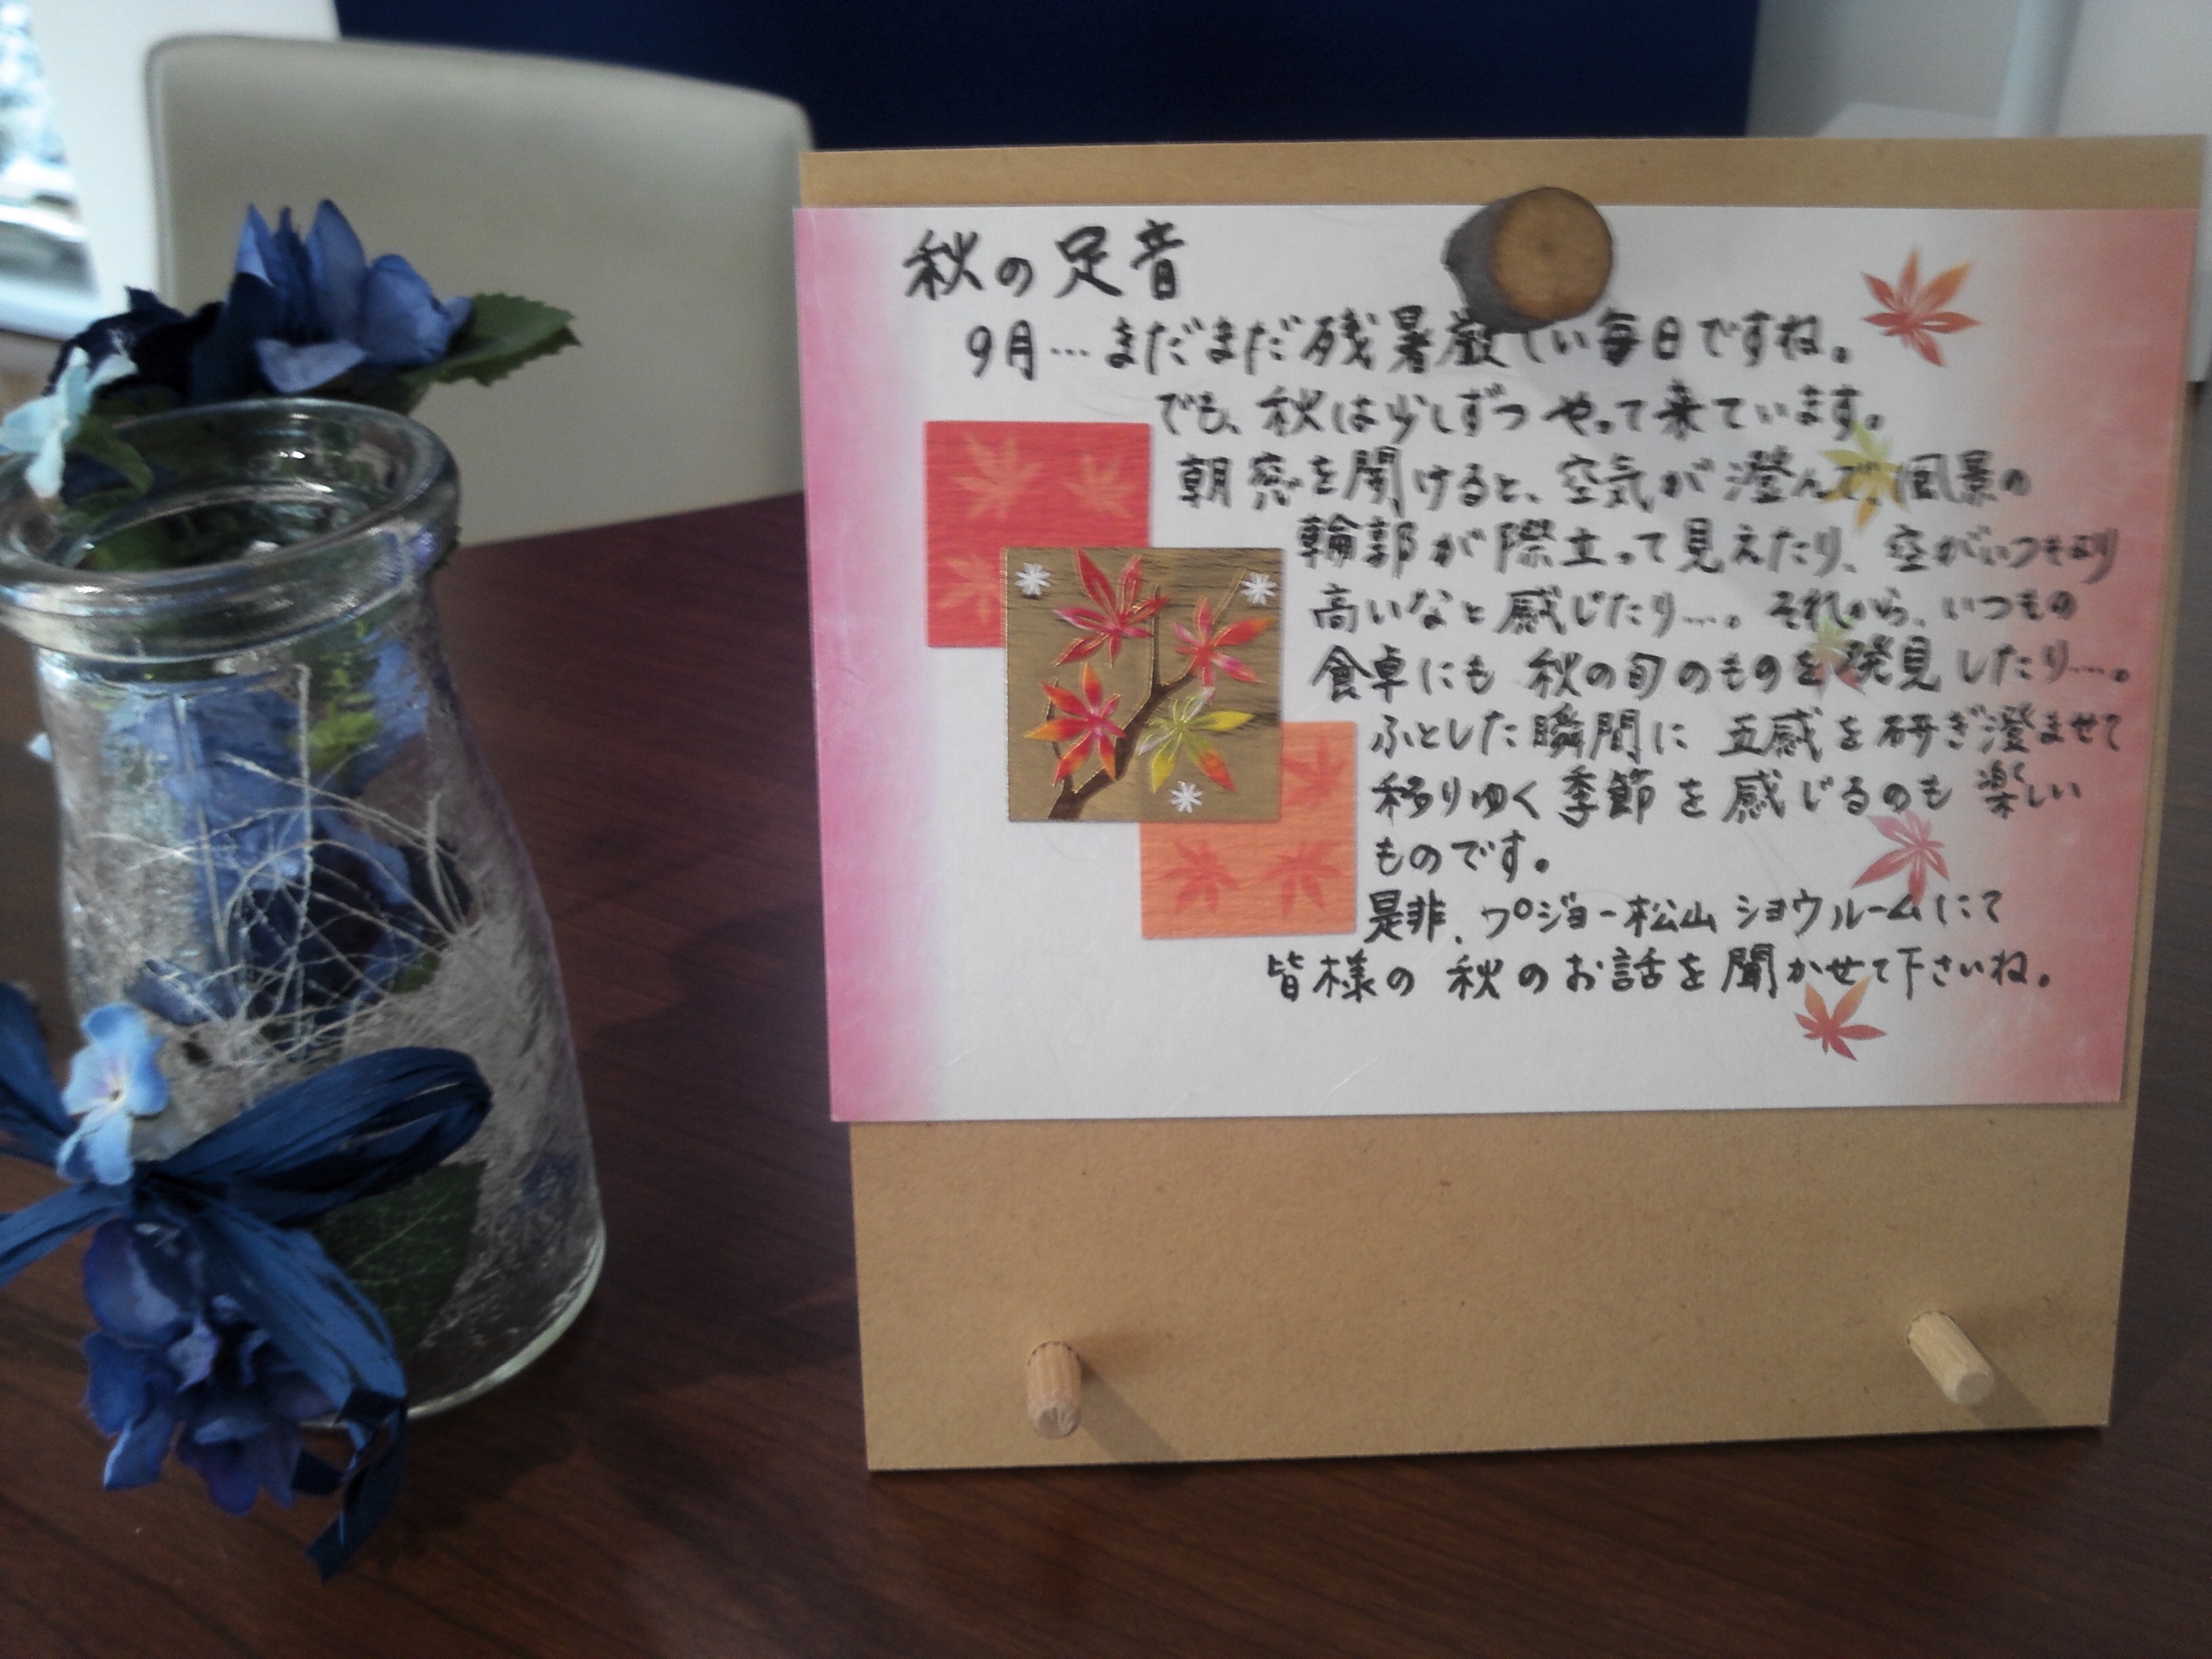 秋の足音
9月…まだまだ残暑厳しい毎日ですね。
でも、秋は少しずつやって来ています。
朝窓を開けると、空気が澄んで、風景の
輪郭が際立って見えたり、空がいつもより
高いなと感じたり…。それから、いつもの
食卓にも秋の旬のものを発見したり…。
ふとした瞬間に五感を研ぎ澄ませて
移りゆく季節を感じるのも楽しい
ものです。
是非、プジョー松山ショウルームにて
皆様の秋のお話を聞かせて下さいね。